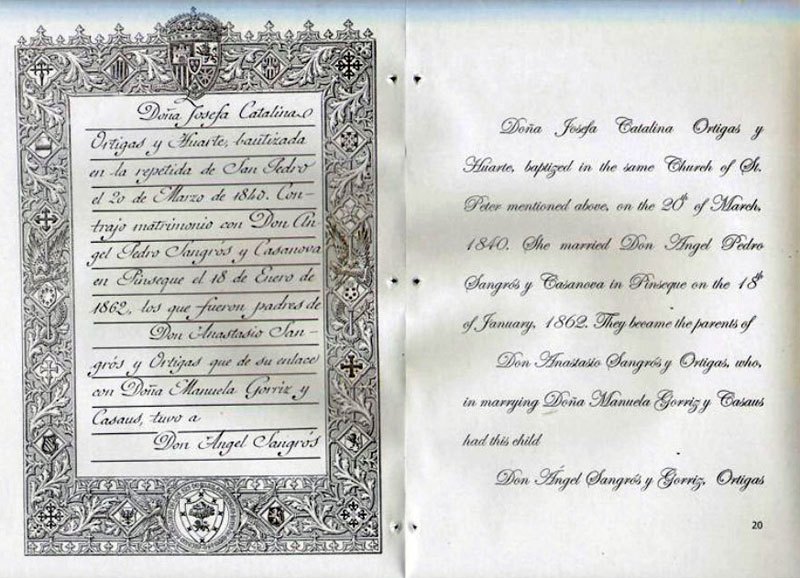 Doña Josefa Catalina
Ortigas y Huarte, bautizada
en la repetida de San Pedro
el 20 de Marzo de 1840. Con-
trajo matrimonio con Don An-
gel Pedro Sangrós y Casanova
en Pinseque el 18 de Enero de
1862, los que fueron padres de
Don Anastasio San-
grós y Ortigas que de su enlace
con Doña Manuela Gorriz y
Casaus, tuvo a
Don Angel Sangrós
Doña Josefa Catalina Ortigas y
Huarte, baptized in the same Church of St.
Peter mentioned above, on the 20th of March,
1840. She married Don Angel Pedro
Sangrós y Casanova in Pinseque on the 18th
of January, 1862. They became the parents of
Don Anastasio Sangrós y Ortigas, who,
in marrying Doña Manuela Gorriz y Casaus
had this child
Don Ángel Sangrós y Gorriz, Ortigas
20